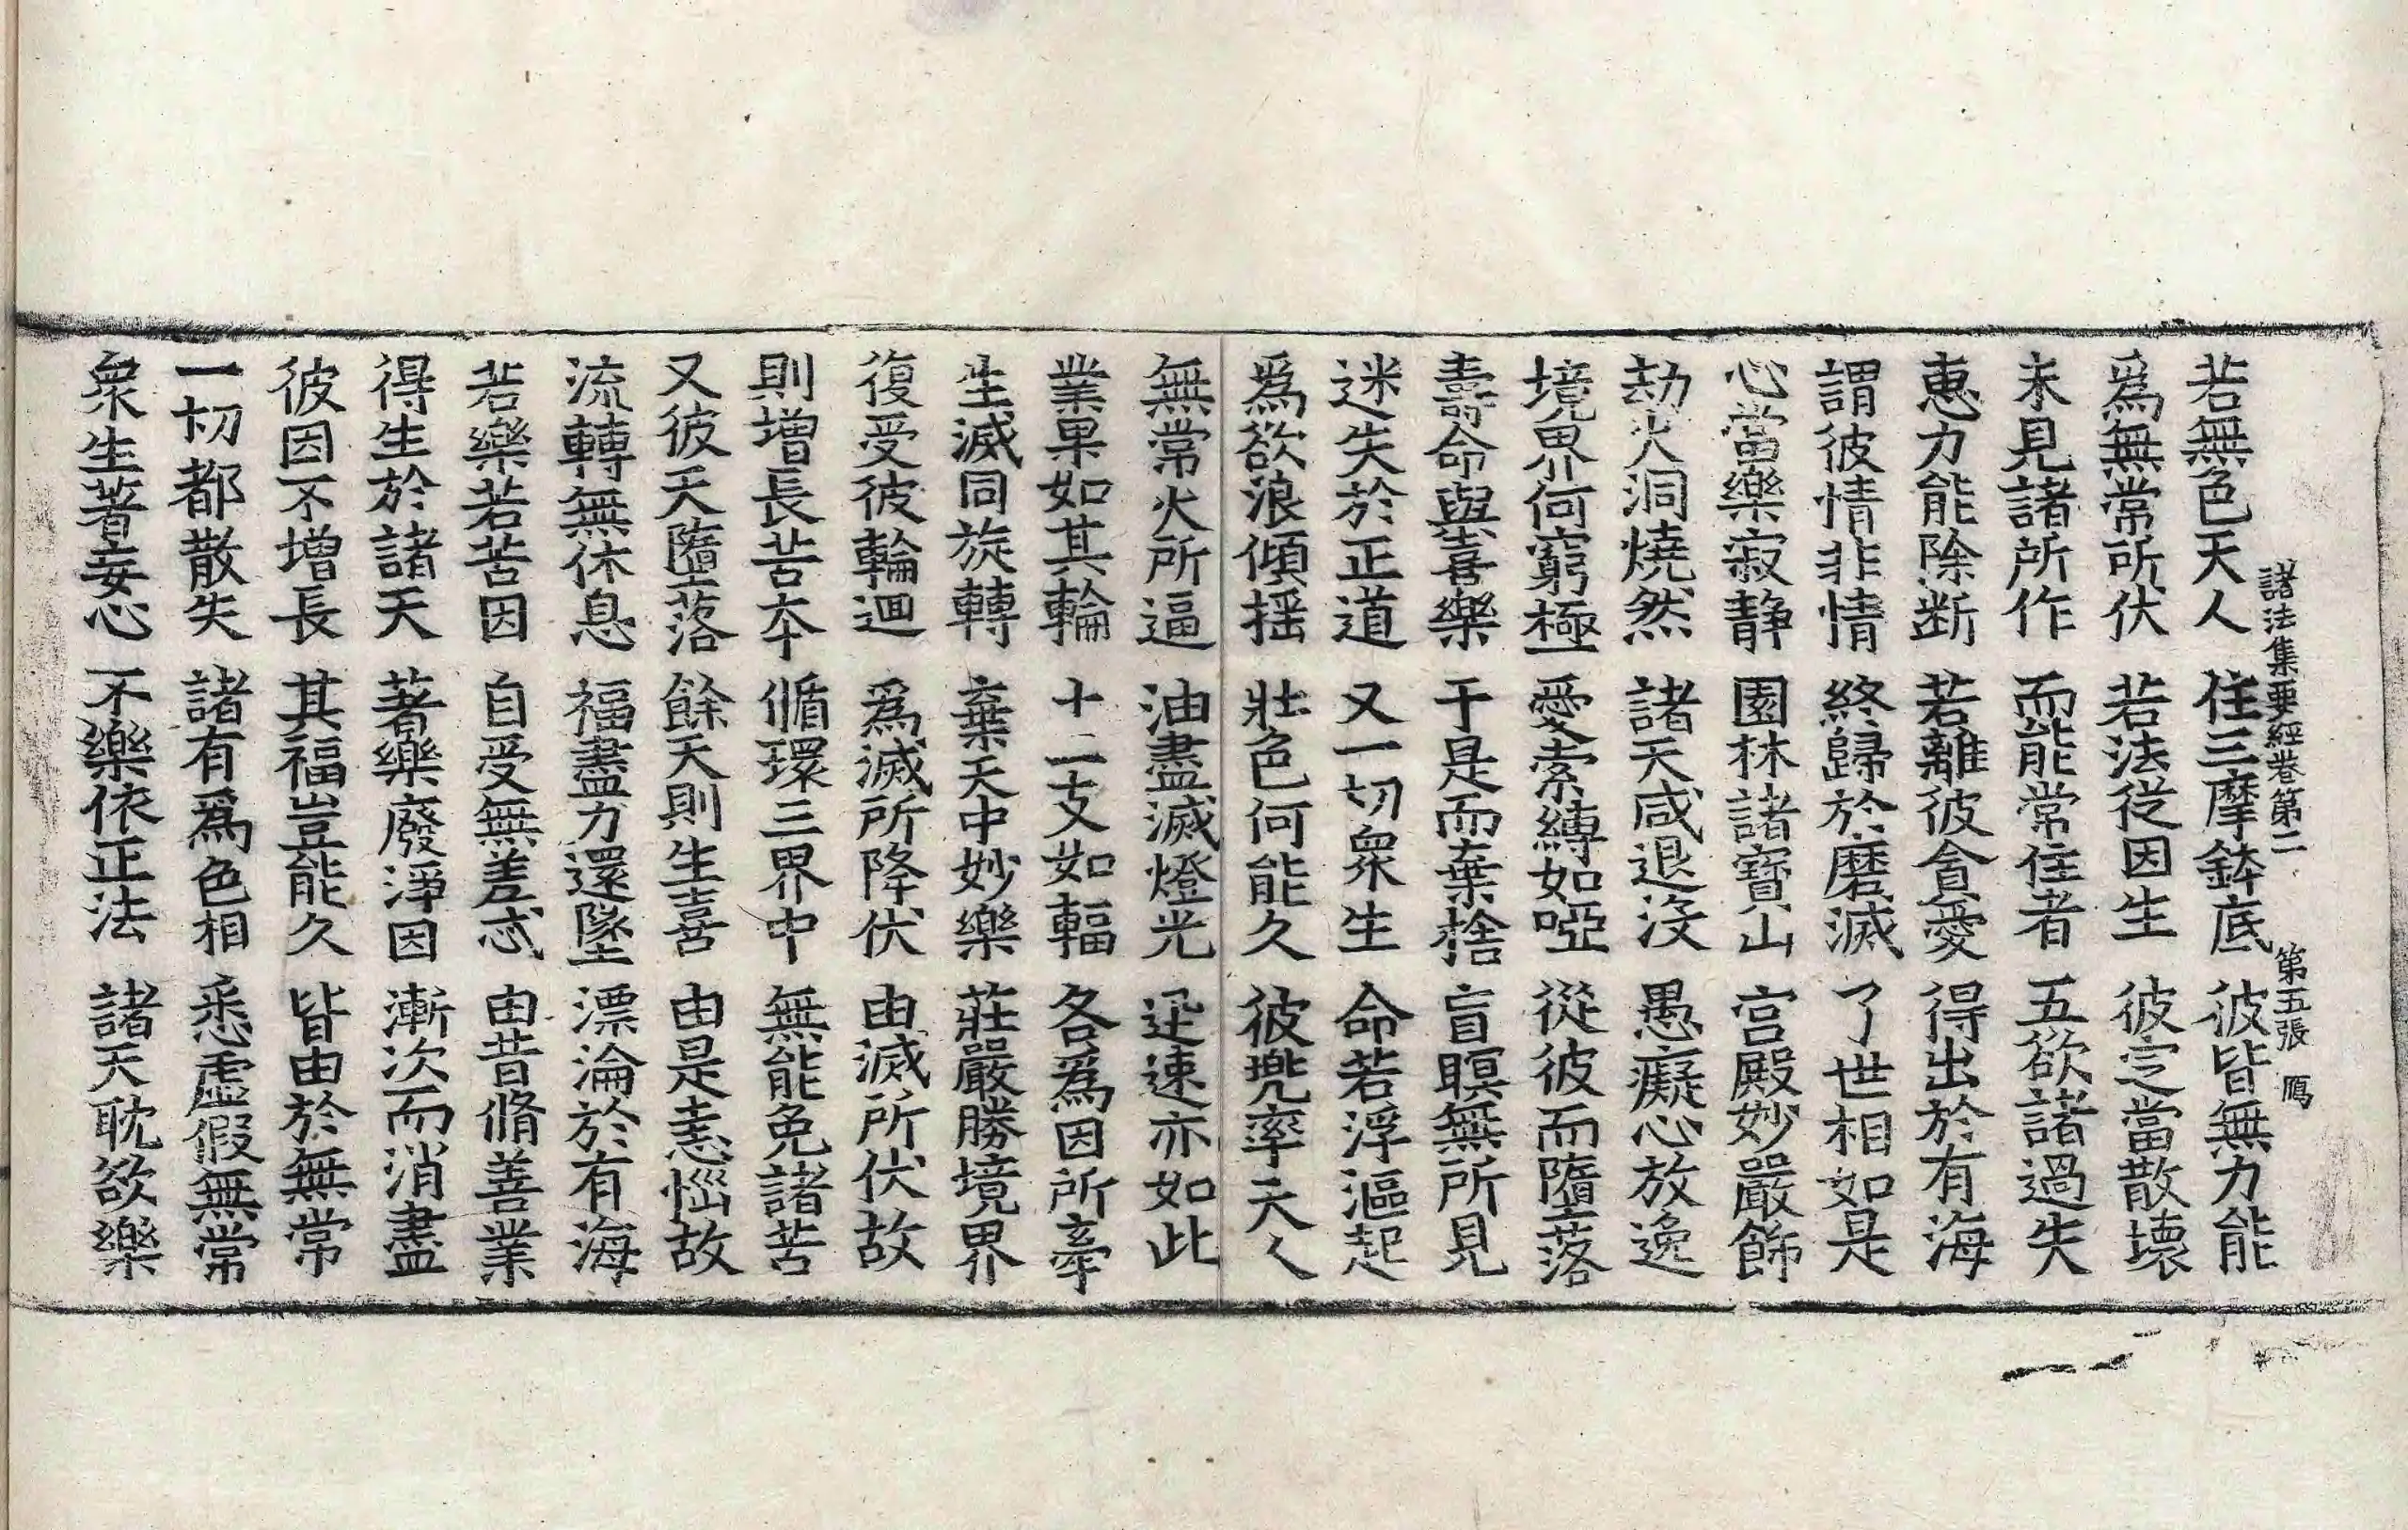 諸法集要經卷第二　第五張　鴈
若無色天人　住三摩鉢底　彼皆無力能
爲無常所伏　若法從因生　彼定當散壞
未見諸所作　而能常住者　五欲諸過失
惠力能除断　若離彼貪愛　得出於有海
謂彼情非情　終歸於磨滅　了世相如是
心當樂寂静　園林諸寶山　宮殿妙嚴飾
劫火洞燒然　諸天咸退没　愚癡心放逸
境界何窮極　愛索縛如啞　從彼而墮落
壽命與喜樂　于是而棄捨　盲瞑無所見
迷失於正道　又一切衆生　命若浮漚起
爲欲浪傾揺　壯色何能久　彼兜率天人
無常火所逼　油盡滅燈光　迅速亦如此
業果如其輪　十二支如輻　各爲因所牽
生滅同旋轉　棄天中妙樂　莊嚴勝境界
復受彼輪迴　爲滅所降伏　由滅所伏故
則增長苦本　循環三界中　無能免諸苦
又彼天墮落　餘天則生喜　由是恚惱故
流轉無休息　福盡力還墜　漂淪於有海
若樂若苦因　自受無差忒　由昔脩善業
得生於諸天　著樂廢淨因　漸次而消盡
彼因不增長　其福豈能久　皆由於無常
一切都散失　諸有爲色相　悉虛假無常
衆生著妄心　不樂依正法　諸天耽欲樂